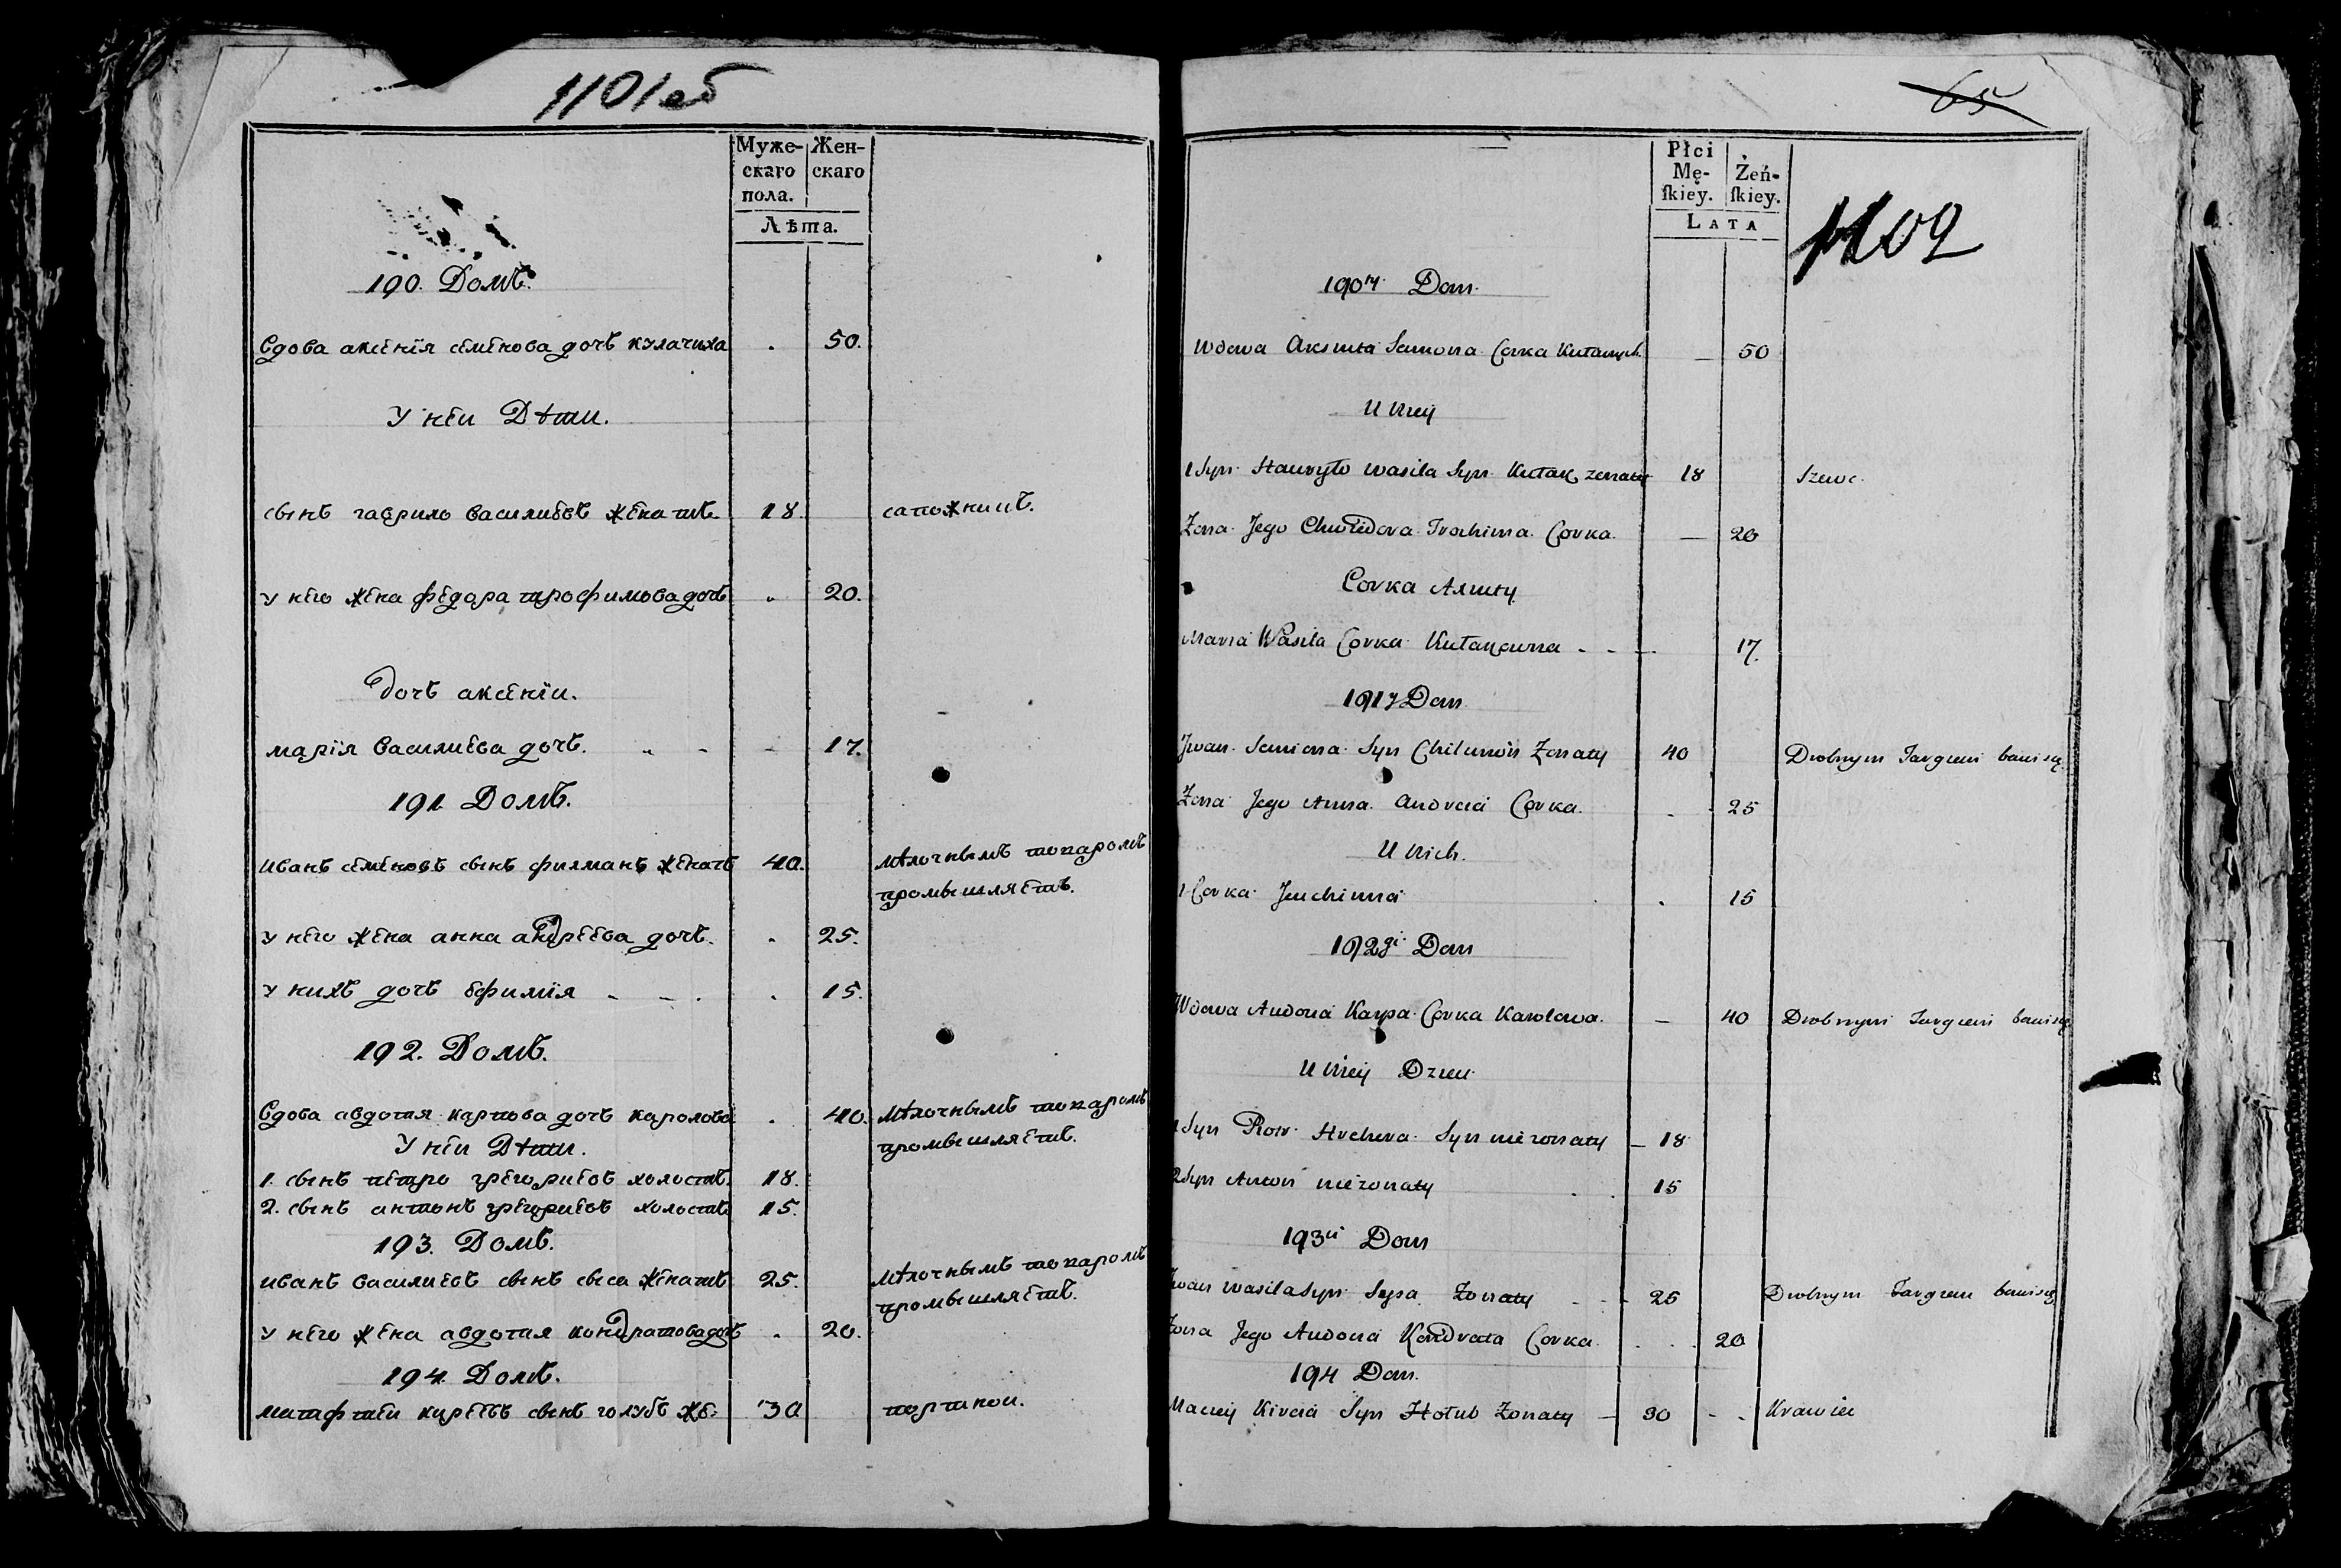 1101об
Муже-
скаго
пола.
Жен-
скаго
Лѣта.
190. Домъ.
вдова аксенїя семенова дочь кулачиха . 50.
У неи Дѣти.
сынъ гаврило василиевъ женатъ 18. сапожникъ.
у него жена федора трофимова дочь . 20.
Дочь аксенїи.
марїя василиева дочь. 17.
191 Домъ.
иванъ семеновъ сынъ филманъ женатъ 40. мѣлочнымъ товаромъ
промышляетъ.
у него жена анна андреева дочь. . 25.
у нихъ дочь ефимїя . 15.
192. Домъ.
вдова авдотия карпова дочь каролова . 40. мѣлочнымъ товаромъ
У неи Дѣти. промышляетъ.
1. сынъ петро григориевъ холостъ. 18.
2. сынъ антонъ григориевъ холостъ 15.
193. Домъ.
иванъ василиевъ сынъ сыса женатъ 25. мѣлочнымъ товаромъ
промышляетъ.
у него жена авдотия кондратова дочь . 20.
194. Домъ.
матфеи киреевъ сынъ голубъ же: 30 портнои.
65
Płci
Mę-
ſkiey.
Żeń-
ſkiey.
LATA
1102
190ty Dom.
Wdowa Aksinia Samona Corka — 50
U Niey
1 Syn Hawryło Wasila Syn Kułak zonaty 18 Szewc.
Zona Jego Chwedora Trochima Corka — 20
Corka Axinty
Maria Wasila Corka Kułakowna - - — 17.
191y Dom
Jwan Semiona Syn Chilimon Zonaty 40 Drobnym Targiem bawi się.
Zona Jego Anna Andreia Corka. . 25
U Nich.
1 Corka Juchimia . 15
192gi Dom
Wdowa Audocia Karpa Corka Karolowa. — 40 Drobnym Targiem bawi się
U Niey Dzieci
1 Syn Piotr Hrehora Syn niezonaty — 18
2 Syn Anton niezonaty 15
193ci Dom
Jwan Wasila Syn Sysa Zonaty - - 25 Drobnym Targiem bawi się
Zona Jego Audocia Kondrata Corka. . . 20
194 Dom.
Maciey Kireia Syn Hołub Zonaty — 30 - - Krawiec